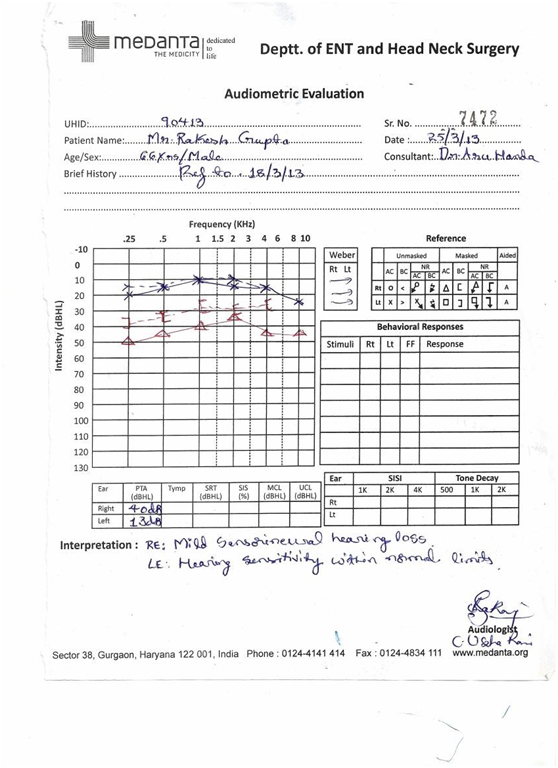 medanta dedicated to life
THE MEDICITY
Deptt. of ENT and Head Neck Surgery
Audiometric Evaluation
UHID: 90413 Sr. No. 7472
Patient Name: Mr. Rakesh Gupta Date : 25/3/13
Age/Sex: 66Yrs/Male Consultant: Dr. Anu Handa
Brief History Ref to 18/3/13
Frequency (KHz)
.25 .5 1 1.5 2 3 4 6 8 10
Intensity (dBHL)
-10
0
10
20
30
40
50
60
70
80
90
100
110
120
130
Weber
Rt Lt
Reference
Unmasked Masked Aided
AC BC NR AC BC NR
AC BC AC BC
Rt O < Δ [ A
Lt X > □ ] A
Behavioral Responses
Stimuli Rt Lt FF Response
Ear PTA (dBHL) Tymp SRT (dBHL) SIS (%) MCL (dBHL) UCL (dBHL)
Right 40dB
Left 13dB
Ear SISI Tone Decay
1K 2K 4K 500 1K 2K
Rt
Lt
Interpretation : RE: Mild Sensorineural hearing loss.
LE: Hearing sensitivity within normal limits.
Audiologist
C. Usha Rani
Sector 38, Gurgaon, Haryana 122 001, India Phone : 0124-4141 414 Fax : 0124-4834 111 www.medanta.org